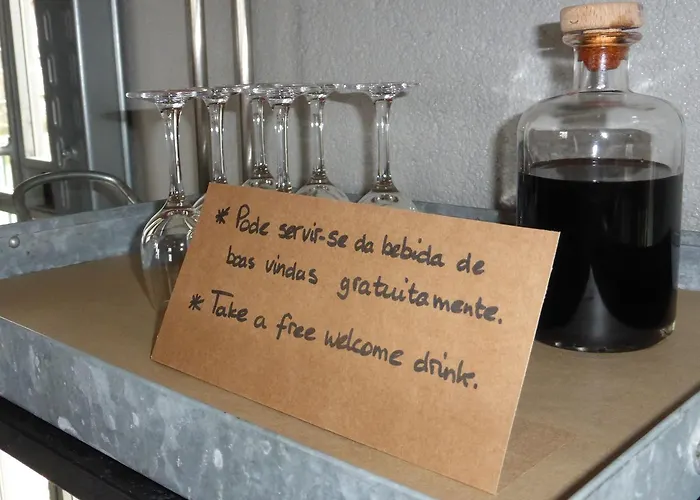 * Pode servir-se da bebida de
boas vindas gratuitamente.
* Take a free welcome drink.